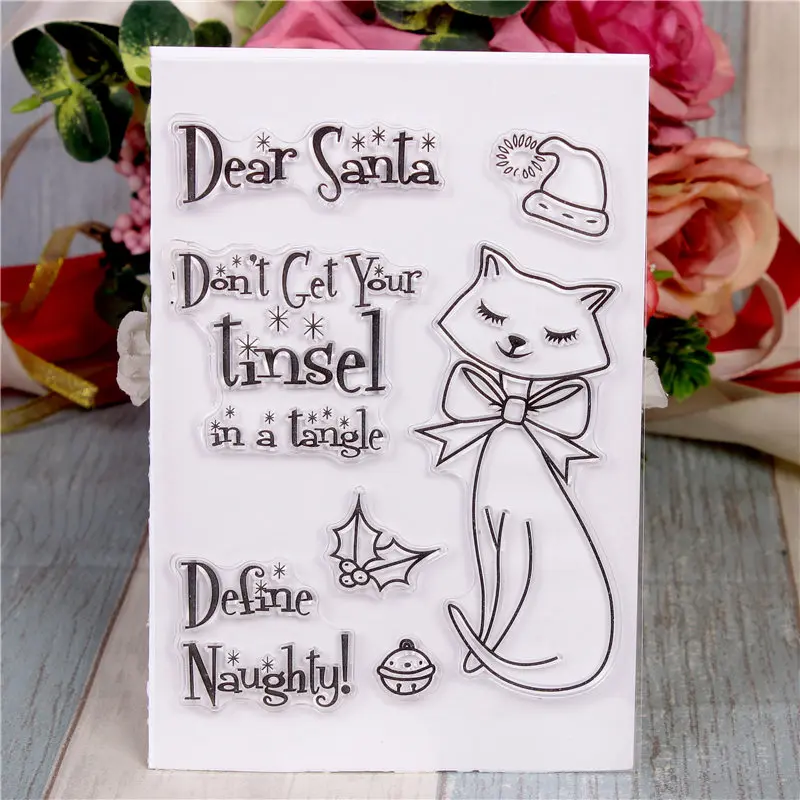 Dear Santa
Don't Get Your
tinsel
in a tangle
Define
Naughty!